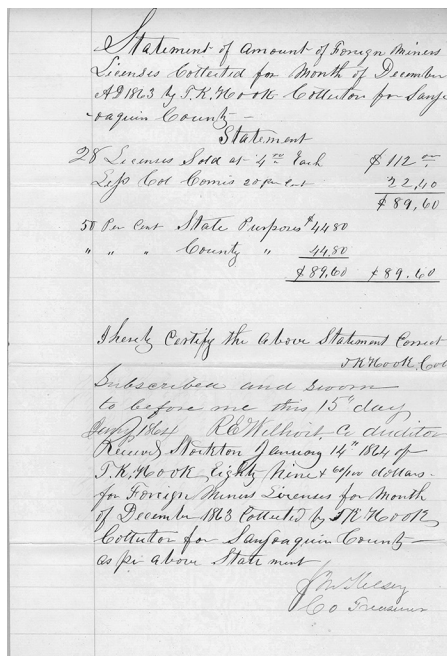 Statement of Amount of Foreign Miners
Licenses Collected for Month of December
AD 1863 by T.K. Hook Collector for Sanj
oaquin County –
Statement
28 Licenses Sold at 4 00 Each $ 112 00
Less Col Comis 20 per cent 22.40
$ 89,60
50 Per Cent State Purposes $ 44 80
" " " County " 44,80
$ 89,60 $ 89.60
I hereby Certify the above Statement Correct
T K Hook, Col
Subscribed and sworn
to before me this 15" day
Jany 1864 R E Wilhoit, Co Auditor
Received Stockton January 14" 1864 of
T.K. Hook, Eighty Nine & 60/100 dollars –
for Foreign Miners Licenses for Month
of December 1863 Collected by T K Hook
Collector for Sanjoaquin County –
as per above Statement
Kelsey
Co Treasurer